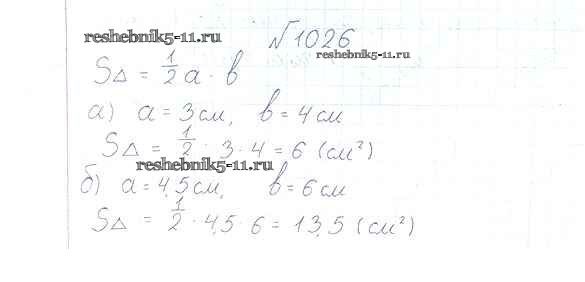 reshebnik5-11.ru №1026
reshebnik5-11.ru
S△ = 1/2 a · b
а) a = 3 см, b = 4 см
S△ = 1/2 · 3 · 4 = 6 (см²)
reshebnik5-11.ru
б) a = 4,5 см, b = 6 см
S△ = 1/2 · 4,5 · 6 = 13,5 (см²)